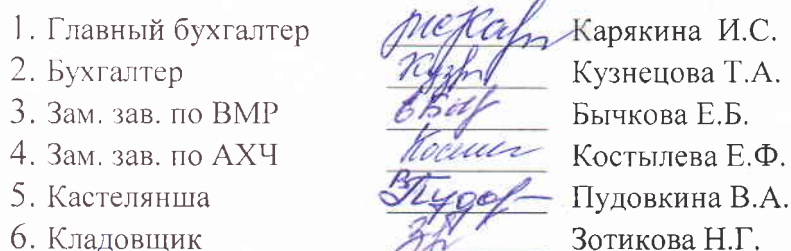 1. Главный бухгалтер Карякина И.С.
2. Бухгалтер Кузнецова Т.А.
3. Зам. зав. по ВМР Бычкова Е.Б.
4. Зам. зав. по АХЧ Костылева Е.Ф.
5. Кастелянша Пудовкина В.А.
6. Кладовщик Зотикова Н.Г.